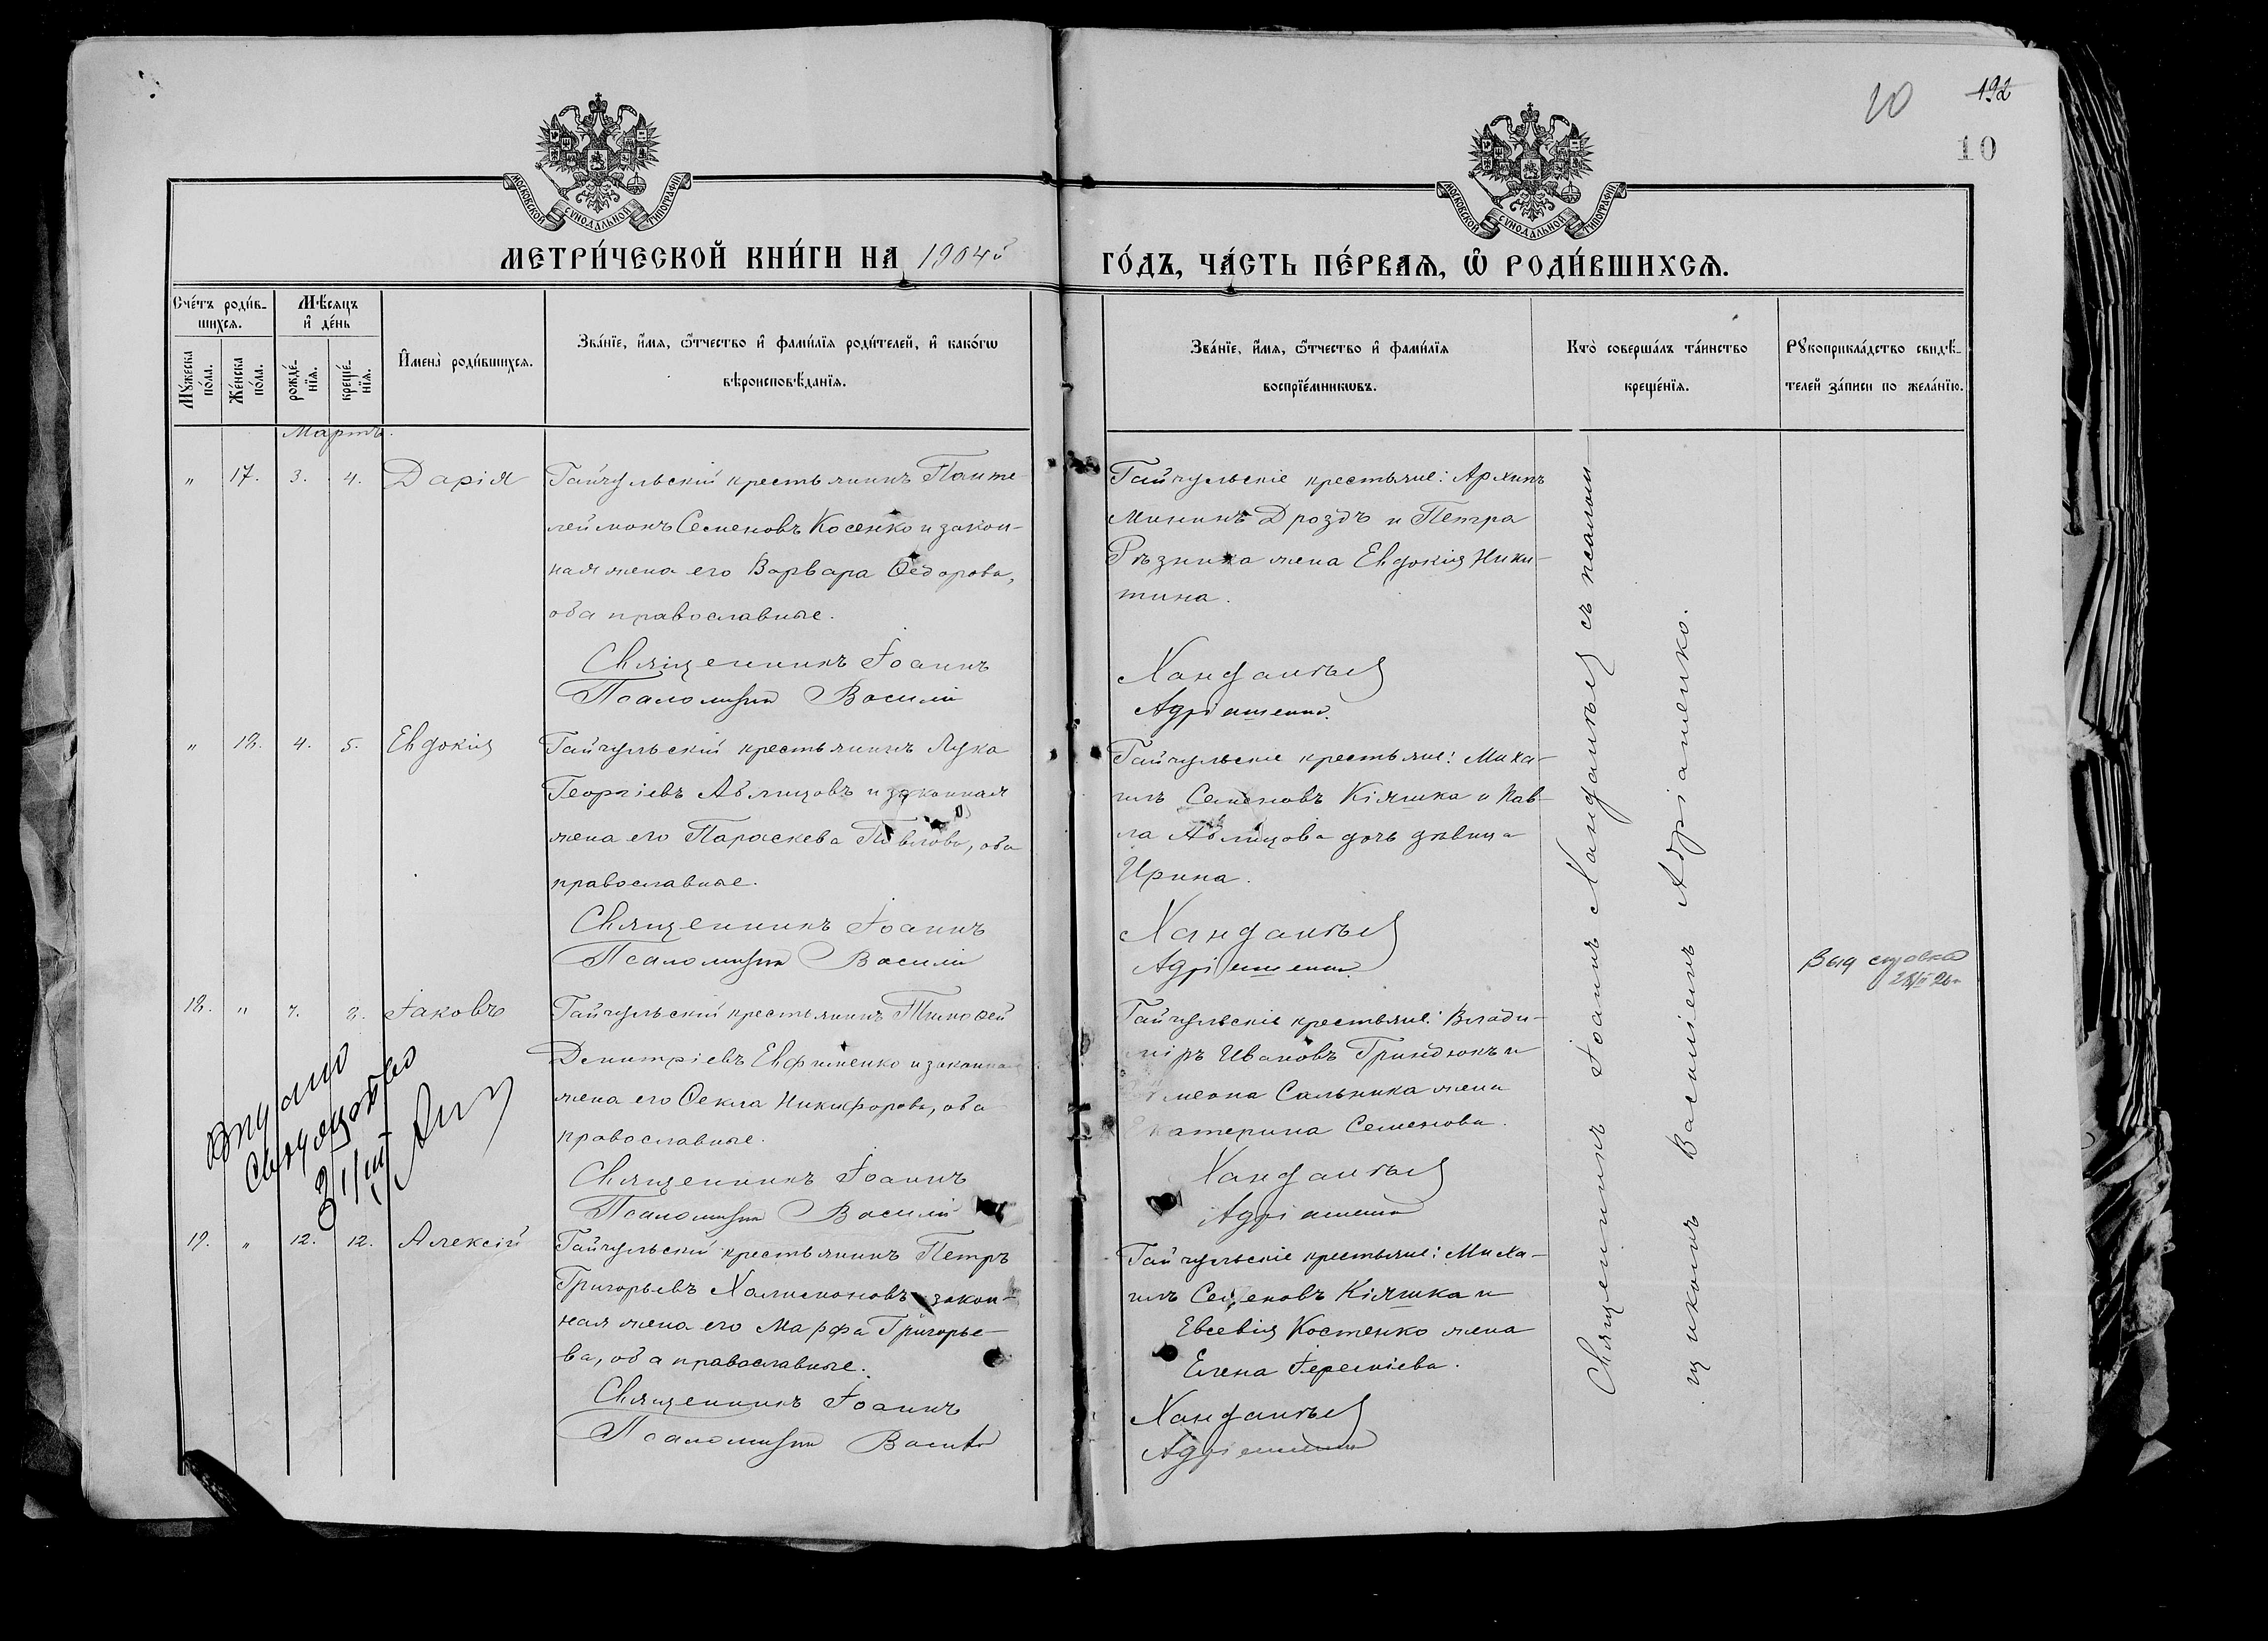 192
10
10
МОСКОВСКОЙ СУНОДАЛЬНОЙ ТИПОГРАФІИ
МОСКОВСКОЙ СУНОДАЛЬНОЙ ТИПОГРАФІИ
МЕТРИ́ЧЕСКОЙ КНИ́ГИ НА 1904й
ГО́ДЪ, ЧА́СТЬ ПЕ́РВАѦ, Ѽ РОДИ́ВШИХСѦ.
Сче́тъ роди́в-
шихсѧ.
Мѣ́сѧцъ
и҆ де́нь
Мꙋ́жеска
по́ла.
Же́нска
по́ла.
рожде́-
нїѧ.
креще́-
нїѧ.
И҆мена̀ роди́вшихсѧ.
Зва́нїе, и҆́мѧ, ѻ҆́тчество и҆ фами́лїѧ роди́телей, и҆ како́гѡ
вѣроисповѣ́данїѧ.
Зва́нїе, и҆́мѧ, ѻ҆́тчество и҆ фами́лїѧ
воспрїе́мникѡвъ.
Кто̀ соверша́лъ та́инство
креще́нїѧ.
Рꙋкоприкла́дство свидѣ́-
телей за́писи по жела́нїю.
Мартъ.
" 17. 3. 4. Дарія
Гайчульскій крестьянинъ Панте-
леймонъ Семеновъ Косенко и закон-
ная жена его Варвара Ѳедорова,
оба православные.
Священникъ Іоаннъ
Псаломщикъ Василій
Гайчульскіе крестьяне: Архипъ
Мининъ Дроздъ и Петра
Рѣзника жена Евдокія Ники-
тина.
Хандалѣев
Адріаненко.
" 18. 4. 5. Евдокія
Гайчульскій крестьянинъ Лука
Георгіевъ Аблицовъ и законная
жена его Параскева Павлова, оба
православные.
Священникъ Іоаннъ
Псаломщикъ Василій
Гайчульскіе крестьяне: Миха-
илъ Семеновъ Кіяшка и Пав-
ла Аблицова дочь дѣвица
Ирина.
Адріаненко
18. " 7. 8. Іаковъ
Гайчульскій крестьянинъ Тимоѳей
Димитріевъ Евфименко и законная
жена его Ѳекла Никифорова, оба
православные.
Священникъ Іоаннъ
Псаломщикъ Василій
Гайчульскіе крестьяне: Влади-
міръ Ивановъ Гриндюкъ и
Симеона Сальника жена
Екатерина Семенова.
Адріаненко
19. " 12. 12. Алексій
Гайчульскій крестьянинъ Петръ
Григорьевъ Халимоновъ и закон-
ная жена его Марѳа Григорье-
ва, оба православные.
Священникъ Іоаннъ
Псаломщикъ Василій
Гайчульскіе крестьяне: Миха-
илъ Семеновъ Кіяшка и
Евсевія Костенко жена
Елена Іереміева.
Адріаненко
Священникъ Іоаннъ съ псалом-
щикомъ Василіемъ Адріаненко.
Выд справка